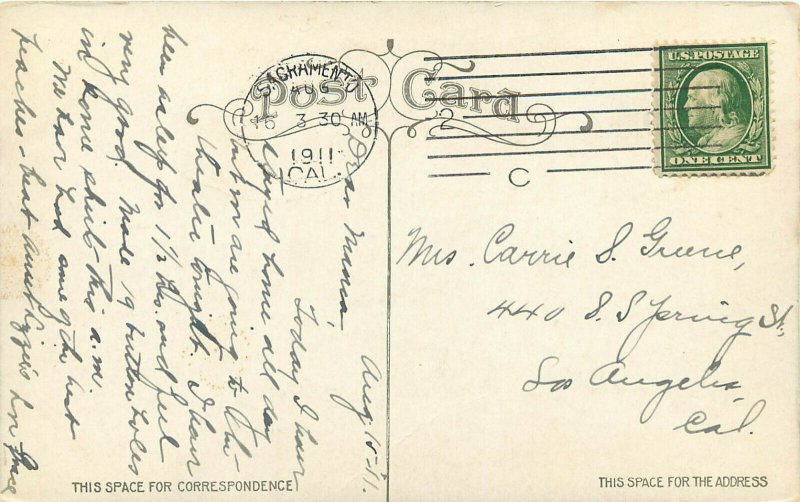 Post Card
SACRAMENTO
AUG
15 3 30 AM
1911
CAL.
2
C
U.S. POSTAGE
ONE CENT
Aug. 15-11.
Dear Mama
Today I have
stayed home all day
but we are going to the
theater tonight. I have
been asleep for 1½ hrs. and feel
very good. Made 19 button holes
in home shirt this a.m.
We have had some of the best
peaches - best
Mrs. Carrie S. Greene,
440 S. Spring St,
Los Angeles
Cal.
THIS SPACE FOR CORRESPONDENCE
THIS SPACE FOR THE ADDRESS